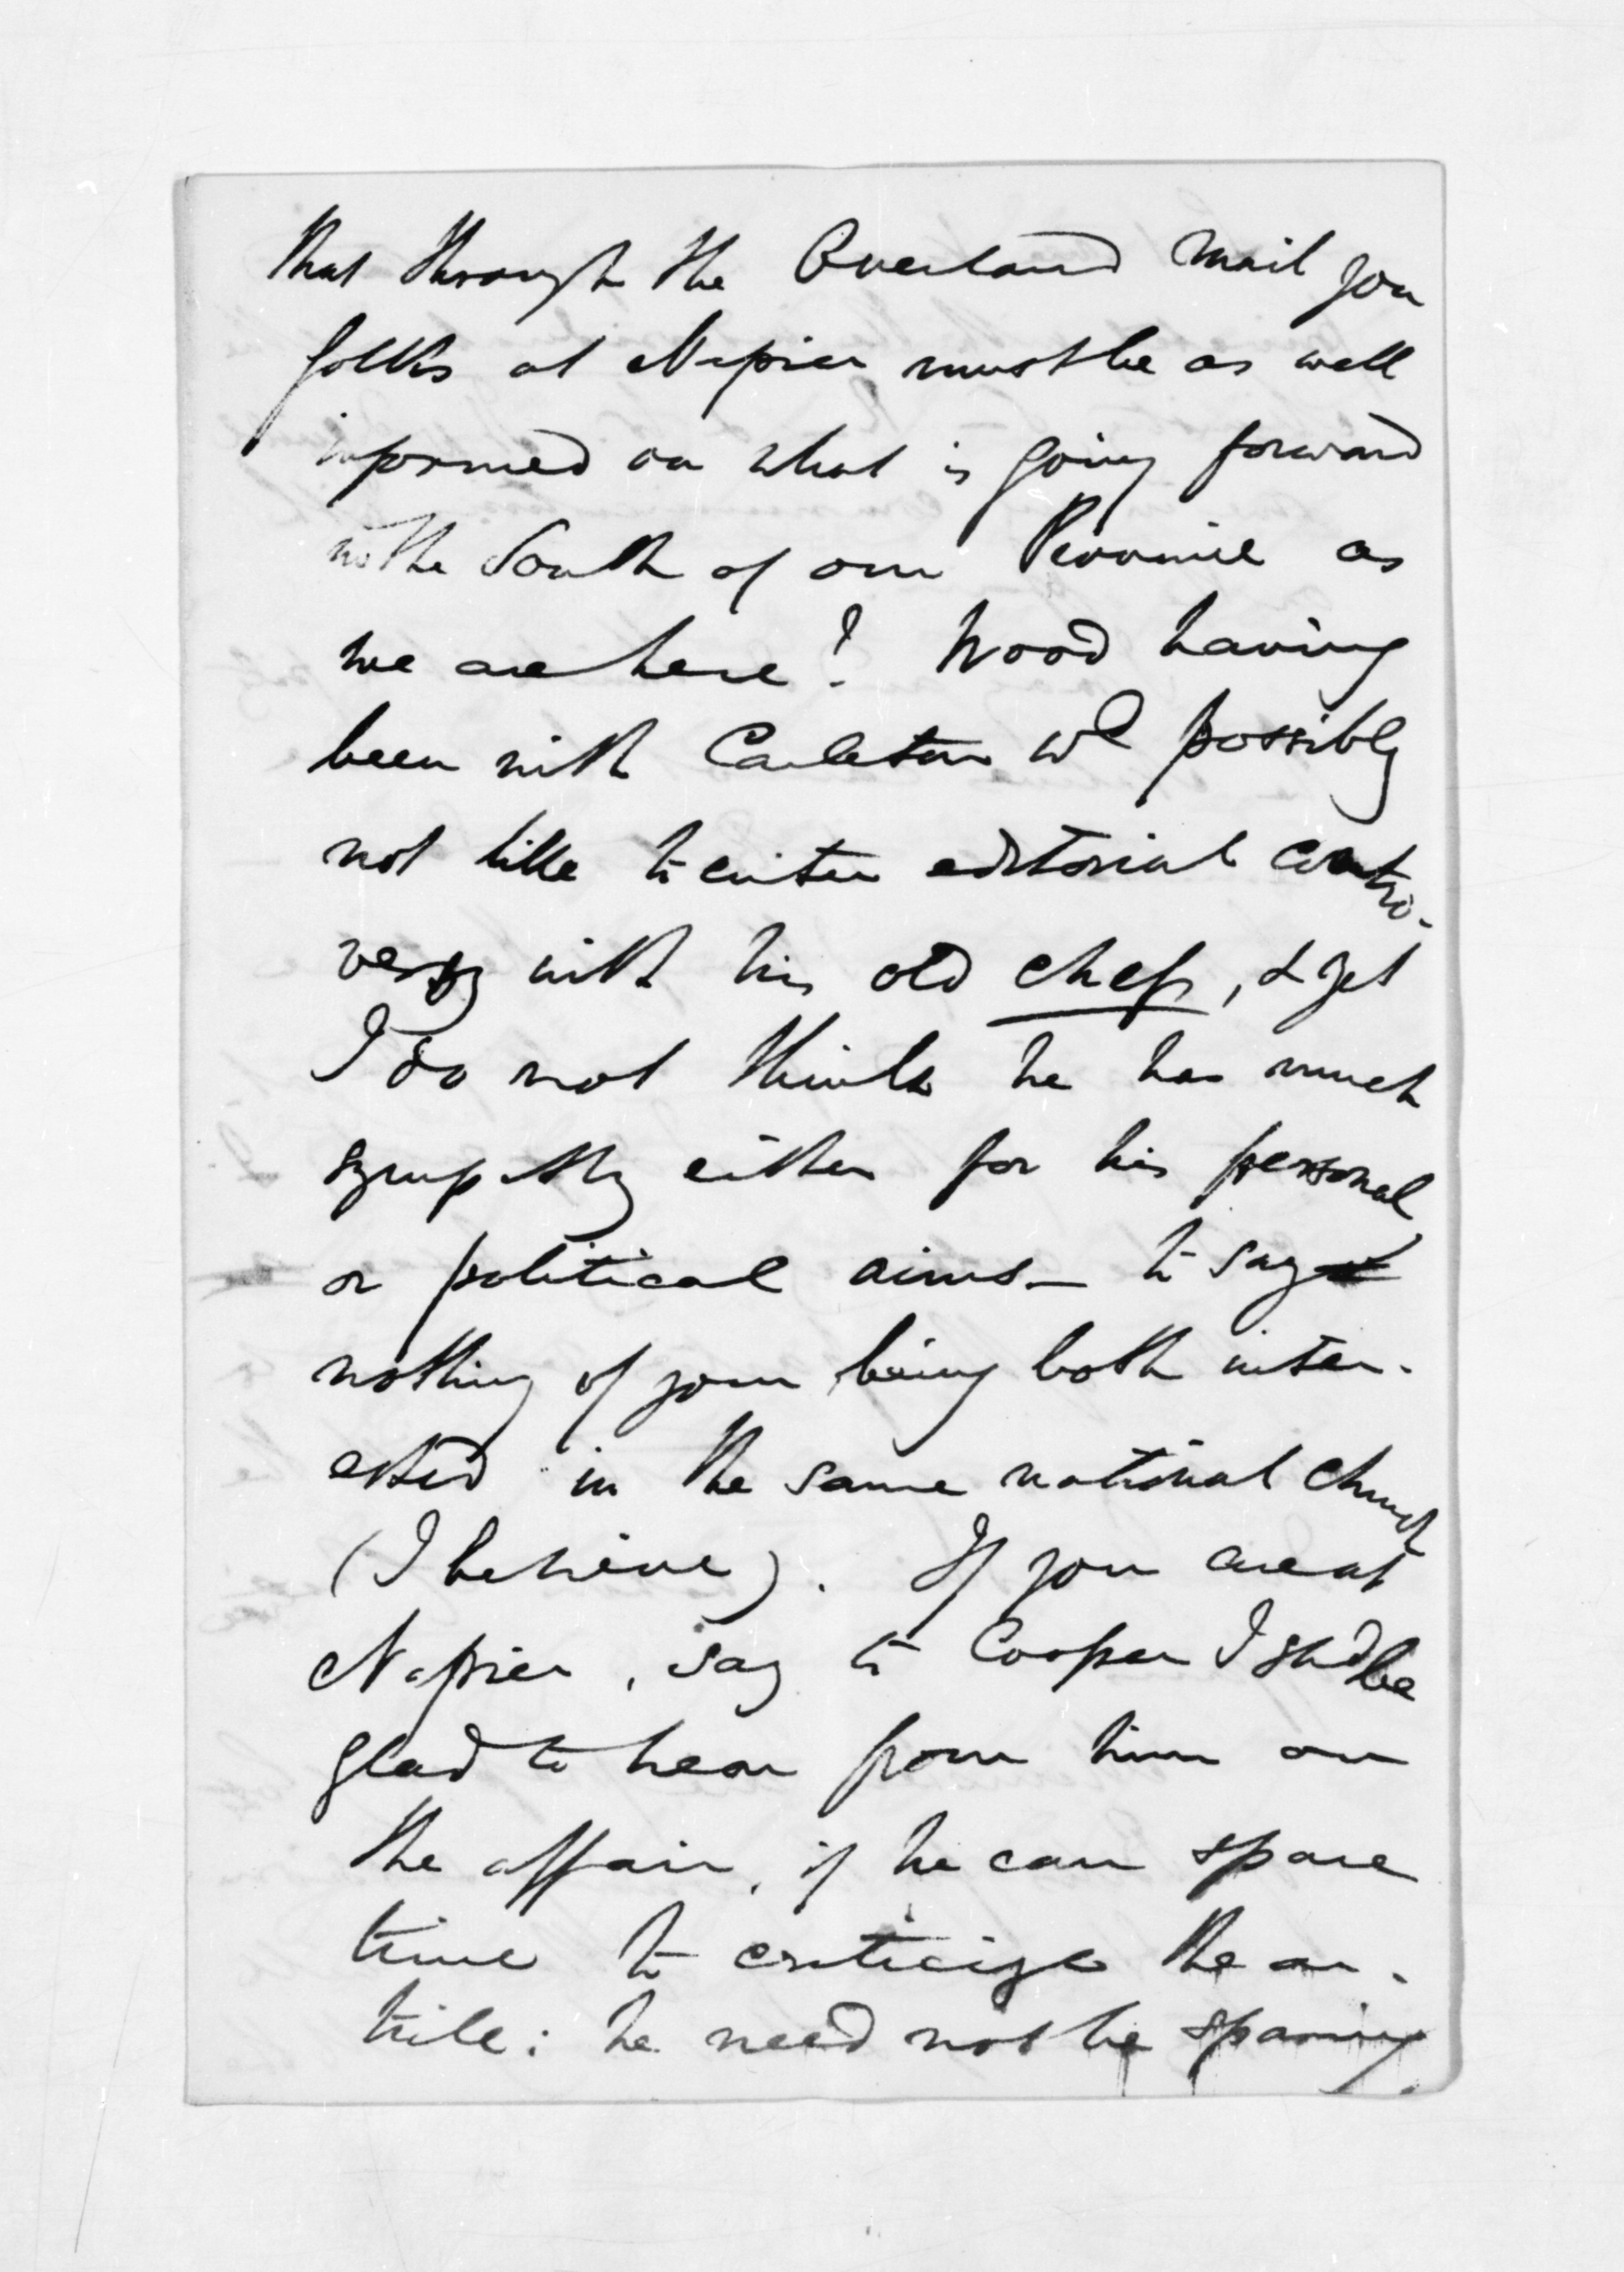 that through the Overland mail you
folks at Napier must be as well
informed on what is going forward
in the South of our Province as
we are here! Wood having
been with Carleton wd possibly
not like to enter editorial contro-
versy with his old chef, & yet
I do not think he has much
sympathy either for his personal
or political aims – to say
nothing of your being both inter-
ested in the same national church
(I believe). If you are at
Napier, say to Cooper I shd be
glad to hear from him on
the affair, if he can spare
time to criticize the ar-
ticle: he need not be sparing.